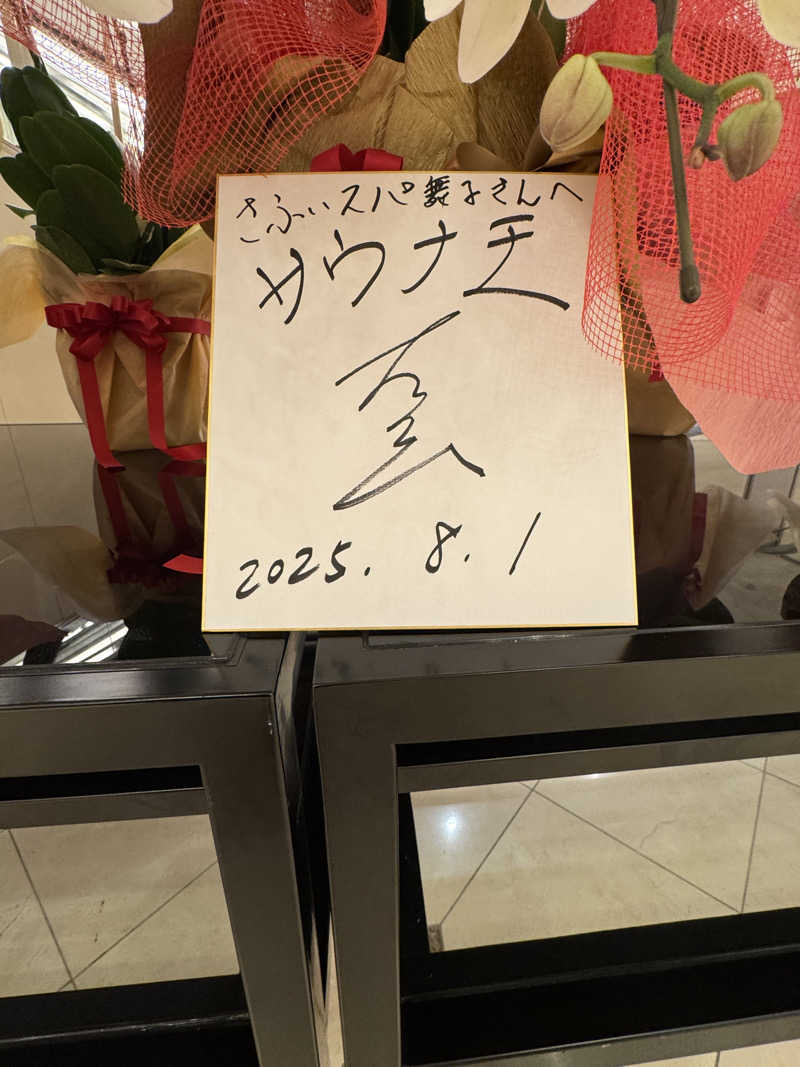 さふぃスパ舞子さんへ
サウナ王
2025. 8. 1